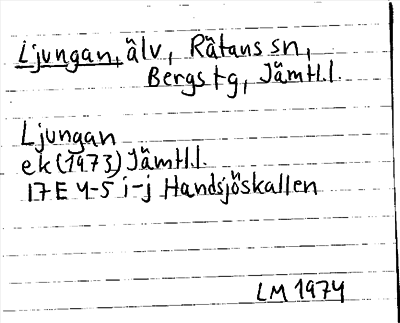 Ljungan, älv, Rätans sn,
Bergs tg, Jämtl.l.
Ljungan
ek (1973) Jämtl.l.
17E 4-5 i-j Handsjöskallen
LM 1974